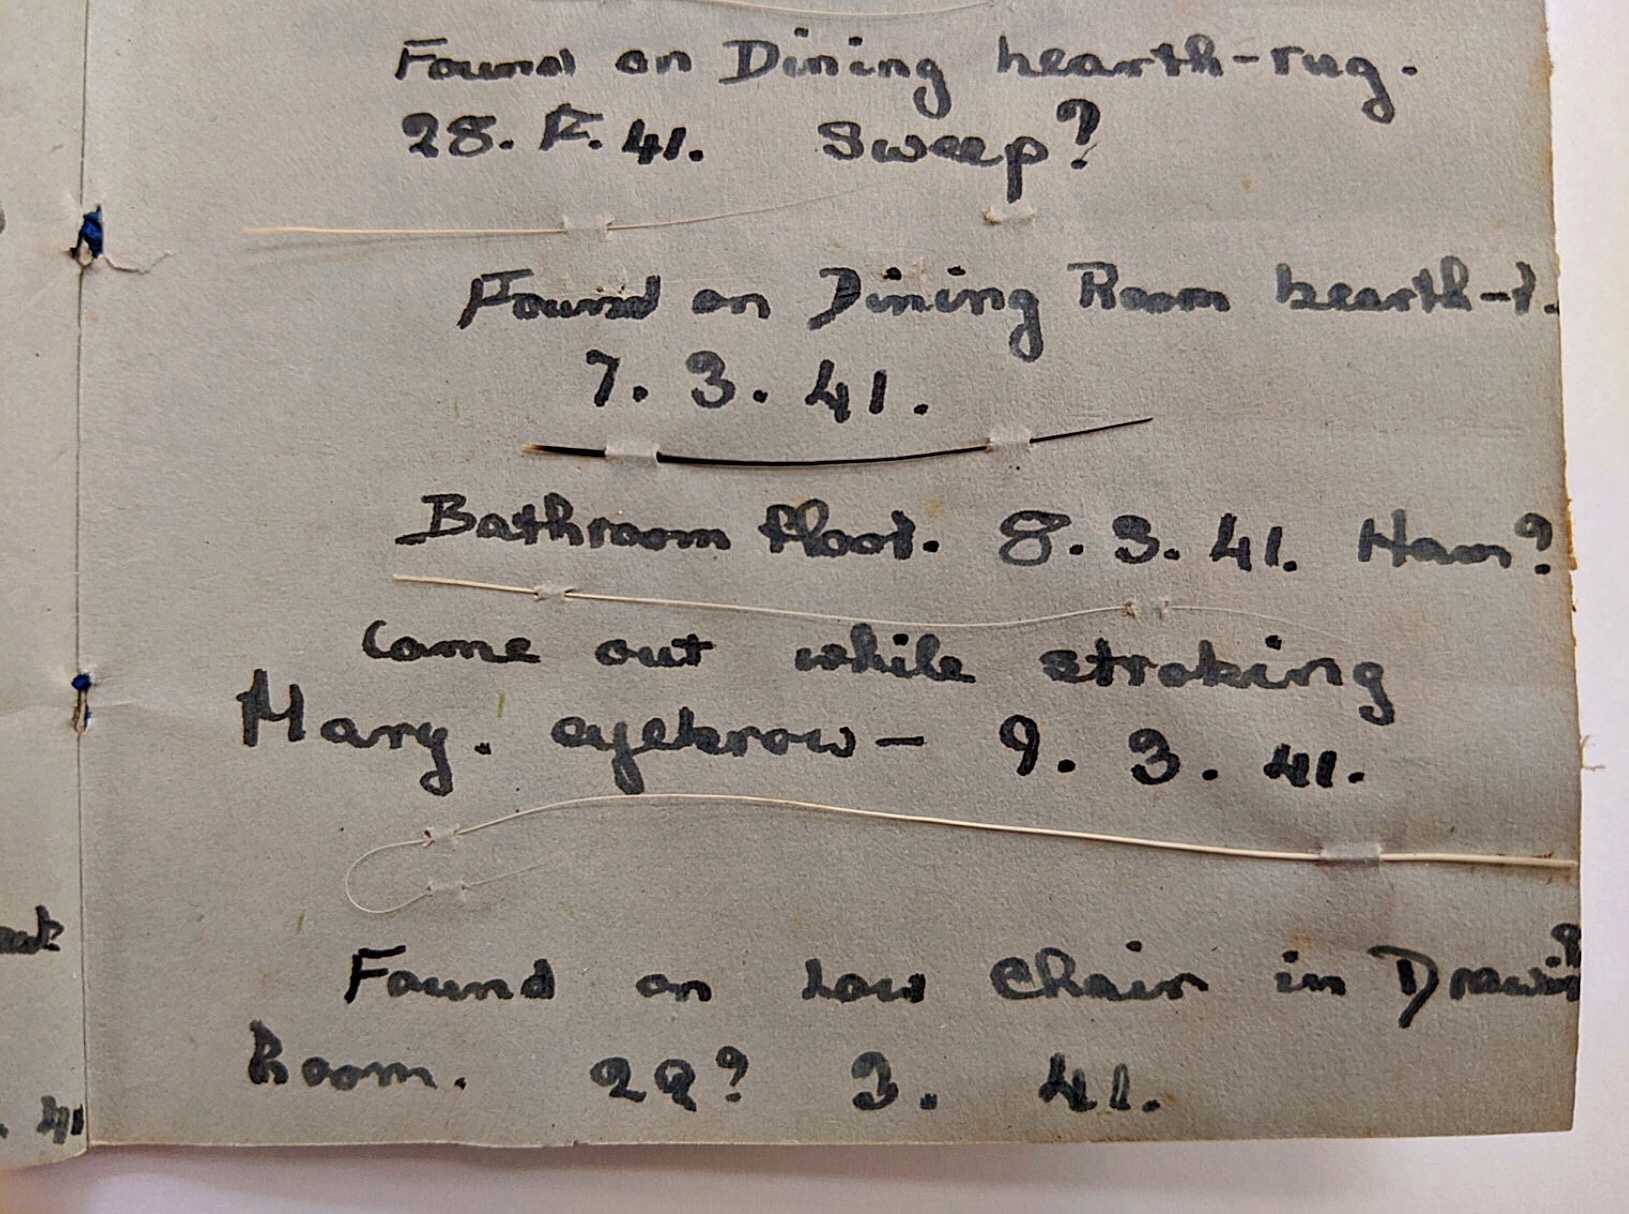 Found on Dining hearth-rug.
28. F. 41. Sweep?
Found on Dining Room hearth-r.
7. 3. 41.
Bathroom floor. 8. 3. 41. Ham?
Came out while stroking
Mary. eyebrow — 9. 3. 41.
Found on low chair in Drawin
Room. 22? 3. 41.